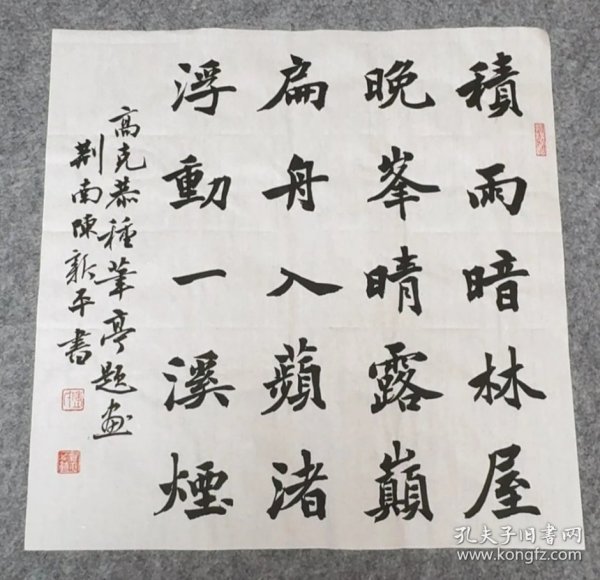 積雨暗林屋
晚峯晴露巔
扁舟入蘋渚
浮動一溪煙
高克恭種筆亭題画
荆南陳新平書
孔夫子旧书网
www.kongfz.com